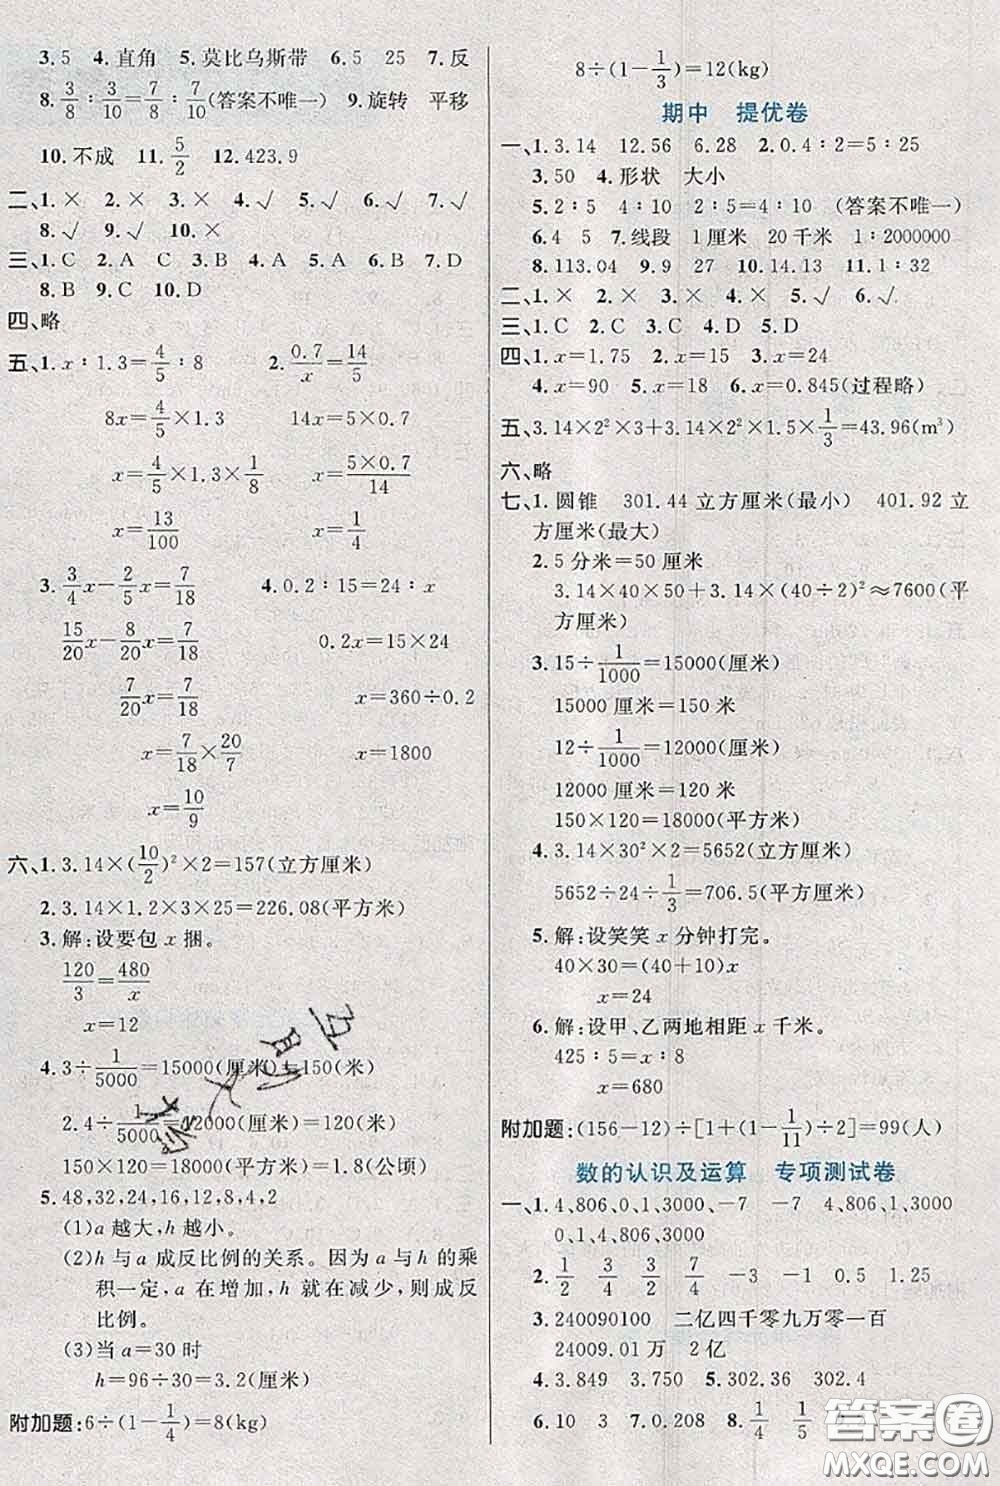 3.5　4.直角　5.莫比乌斯带　6.5　25　7.反
8.3/8∶3/10=7/8∶7/10(答案不唯一)　9.旋转　平移
10.不成　11.5/2　12.423.9
二、1.×　2.×　3.×　4.√　5.√　6.√　7.√
8.√　9.√　10.×
三、1.C　2.A　C　3.B　4.A　5.A　6.B　7.D
8.B　9.C　10.D
四、略
五、1.x∶1.3=4/5∶8　2.0.7/x=14/5
8x=4/5×1.3　14x=5×0.7
x=4/5×1.3×1/8　x=5×0.7/14
x=13/100　x=1/4
3.3/4x-2/5x=7/18　4.0.2∶15=24∶x
15/20x-8/20x=7/18　0.2x=15×24
7/20x=7/18　x=360÷0.2
x=7/18×20/7　x=1800
x=10/9
六、1.3.14×(10/2)²×2=157(立方厘米)
2.3.14×1.2×3×25=226.08(平方米)
3.解:设要包x捆。
120/3=480/x
x=12
4.3÷1/5000=15000(厘米)=150(米)
2.4÷1/5000=12000(厘米)=120(米)
150×120=18000(平方米)=1.8(公顷)
5.48,32,24,16,12,8,4,2
(1)a越大,h越小。
(2)h与a成反比例的关系。因为a与h的乘
积一定,a在增加,h就在减少,则成反
比例。
(3)当a=30时
h=96÷30=3.2(厘米)
附加题:6÷(1-1/4)=8(kg)
8÷(1-1/3)=12(kg)
期中　提优卷
一、1.3.14　12.56　6.28　2.0.4∶2=5∶25
3.50　4.形状　大小
5.2∶5　4∶10　2∶5=4∶10　(答案不唯一)
6.4　5　7.线段　1厘米　20千米　1∶2000000
8.113.04　9.9　27　10.14.13　11.1∶32
二、1.×　2.×　3.×　4.√　5.√　6.×
三、1.C　2.B　3.C　4.D　5.D
四、1.x=1.75　2.x=15　3.x=24
4.x=90　5.x=18　6.x=0.845(过程略)
五、3.14×2²×3+3.14×2²×1.5×1/3=43.96(m³)
六、略
七、1.圆锥　301.44立方厘米(最小)　401.92立
方厘米(最大)
2.5分米=50厘米
3.14×40×50+3.14×(40÷2)²≈7600(平
方厘米)
3.15÷1/1000=15000(厘米)
15000厘米=150米
12÷1/1000=12000(厘米)
12000厘米=120米
150×120=18000(平方米)
4.3.14×30²×2=5652(立方厘米)
5652÷24÷1/3=706.5(平方厘米)
5.解:设笑笑x分钟打完。
40×30=(40+10)x
x=24
6.解:设甲、乙两地相距x千米。
425∶5=x∶8
x=680
附加题:(156-12)÷[1+(1-1/11)÷2]=99(人)
数的认识及运算　专项测试卷
一、1.4,806,0,1,3000　-7　-7　4,806,1,3000
0,1,4,806,3000
2.1/2　3/4　3/4　7/4　-3　-1　0.5　1.25
3.240090100　二亿四千零九万零一百
24009.01万　2亿
4.3.849　3.750　5.302.5　302.4
6.10　3　7.0.208　8.1/4　1/5
答案圈
MXQE.COM